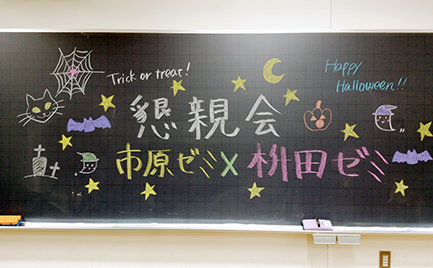 Trick or treat!
Happy
Halloween!!
懇親会
市原ゼミ×桝田ゼミ